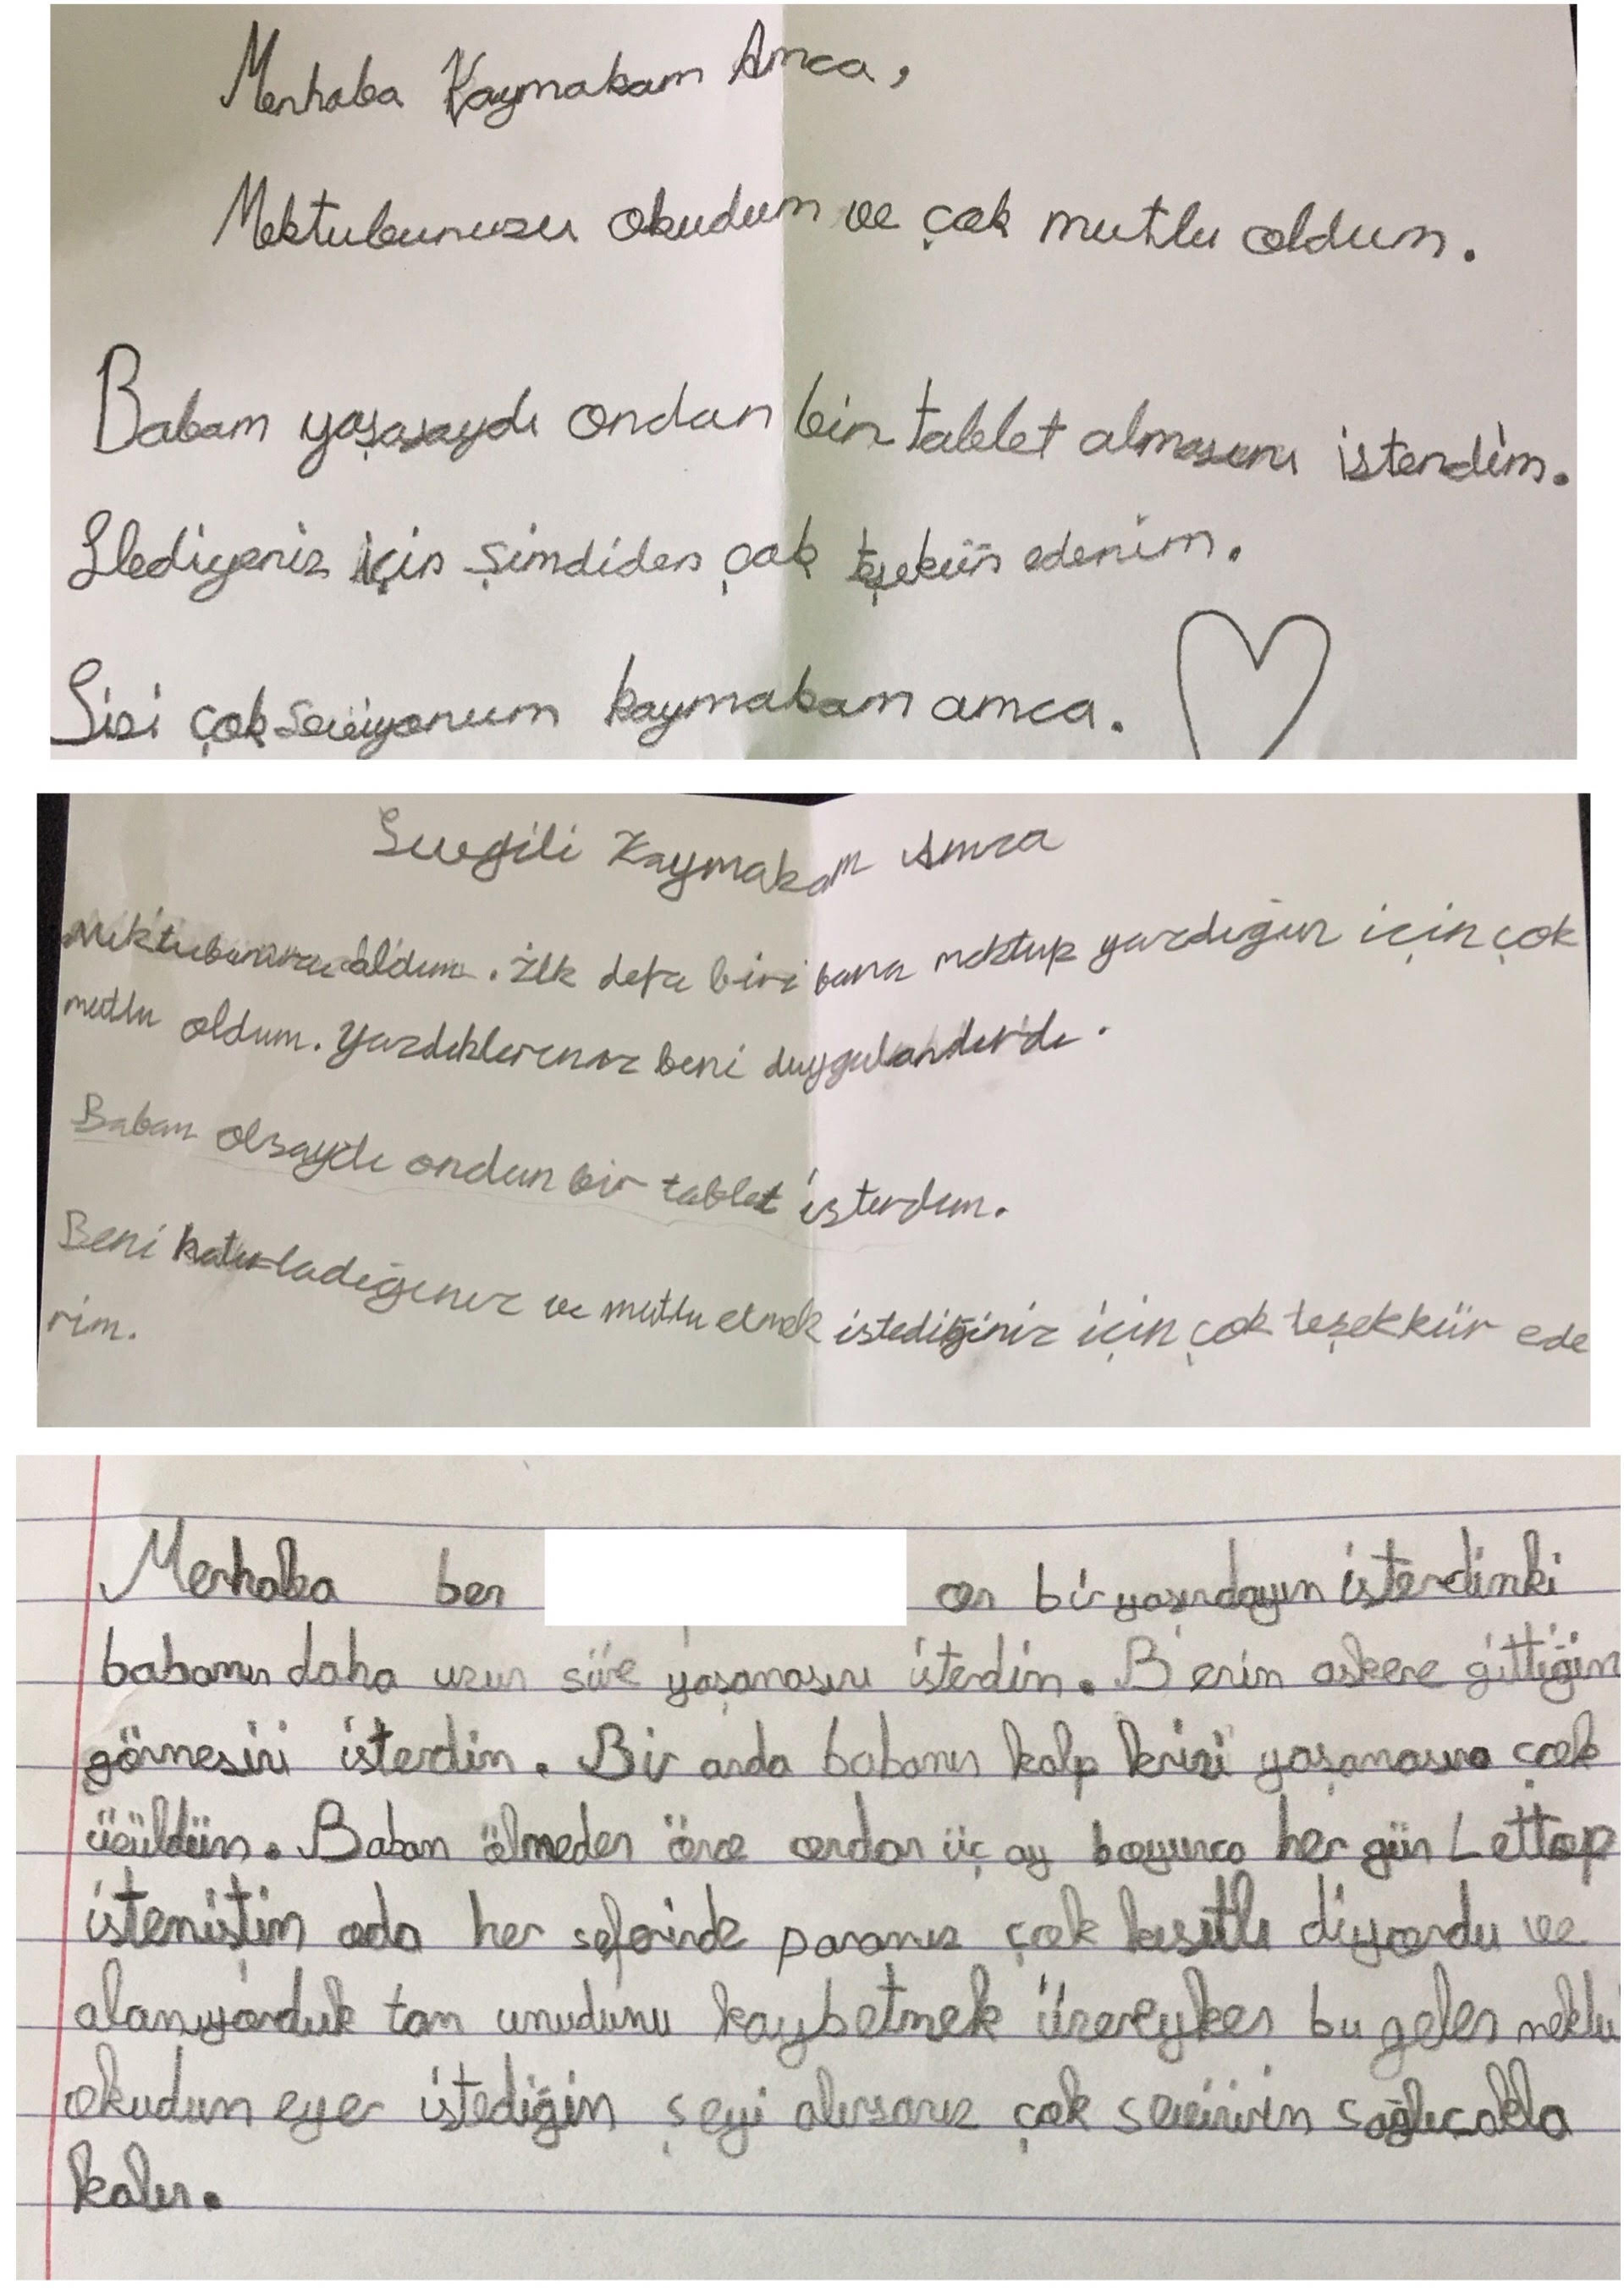 Merhaba Kaymakam Amca,
Mektubunuzu okudum ve çok mutlu oldum.
Babam yaşasaydı ondan bir tablet almasını isterdim.
Hediyeniz için şimdiden çok teşekür ederim.
Sizi çok seviyorum kaymakam amca.
Sevgili Kaymakam Amca
Mektubunuzu aldım. İlk defa biri bana mektup yazdığı için çok
mutlu oldum. Yazdıklarınız beni duygulandırdı.
Babam olsaydı ondan bir tablet isterdim.
Beni hatırladığınız ve mutlu etmek istediğiniz için çok teşekkür ede
rim.
Merhaba ben on bir yaşındayım isterdimki
babamın daha uzun süre yaşamasını isterdim. Benim askere gittiğim
görmesini isterdim. Bir anda babamın kalp krizi yaşamasına çok
üzüldüm. Babam ölmeden önce ondan üç ay boyunca her gün Lettop
istemiştim oda her seferinde paramız çok kısıtlı diyordu ve
alamıyorduk tam umudumu kaybetmek üzereyken bu gelen mektu
okudum eyer istediğim şeyi alırsanız çok sevinirim sağlıcakla
kalın.